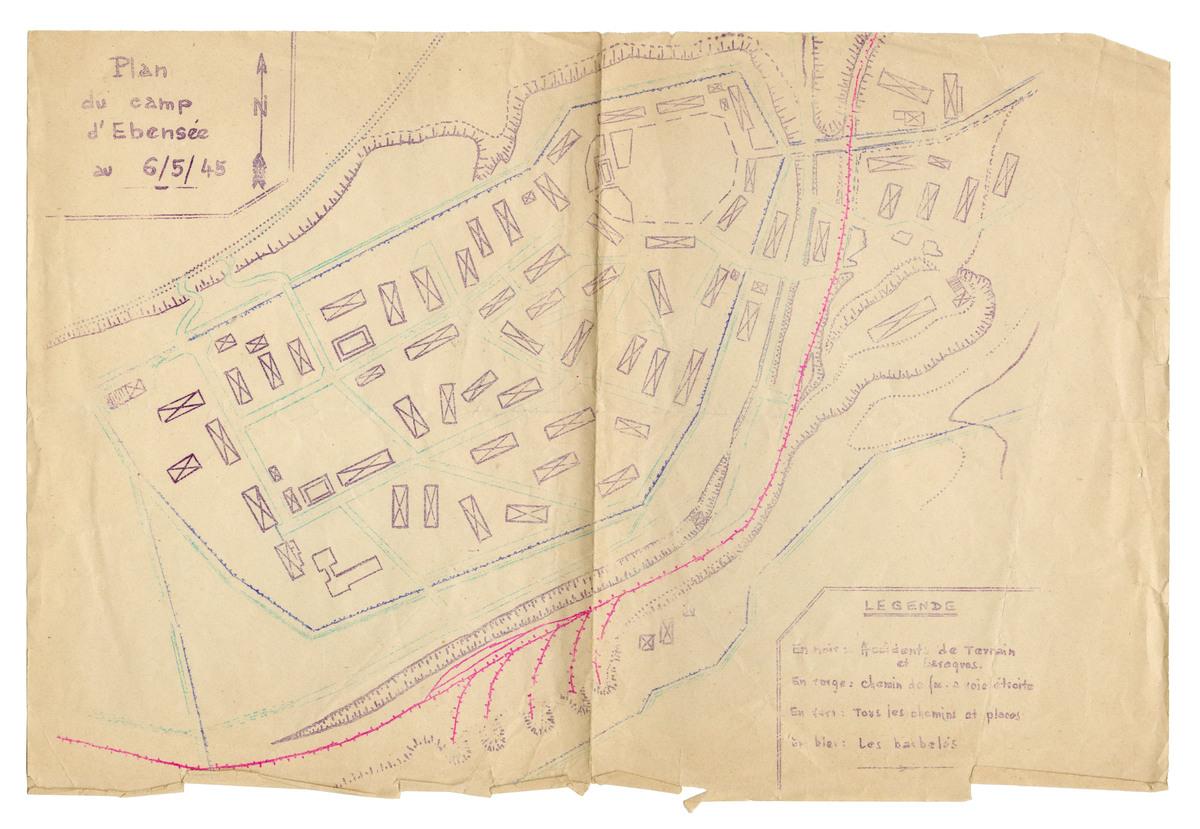 Plan
du camp
d'Ebensée
au 6/5/45
N
LEGENDE
En noir: Accidents de Terrain
et baraques.
En rouge: chemin de fer à voie étroite
En vert: Tous les chemins et places
En bleu: Les barbelés